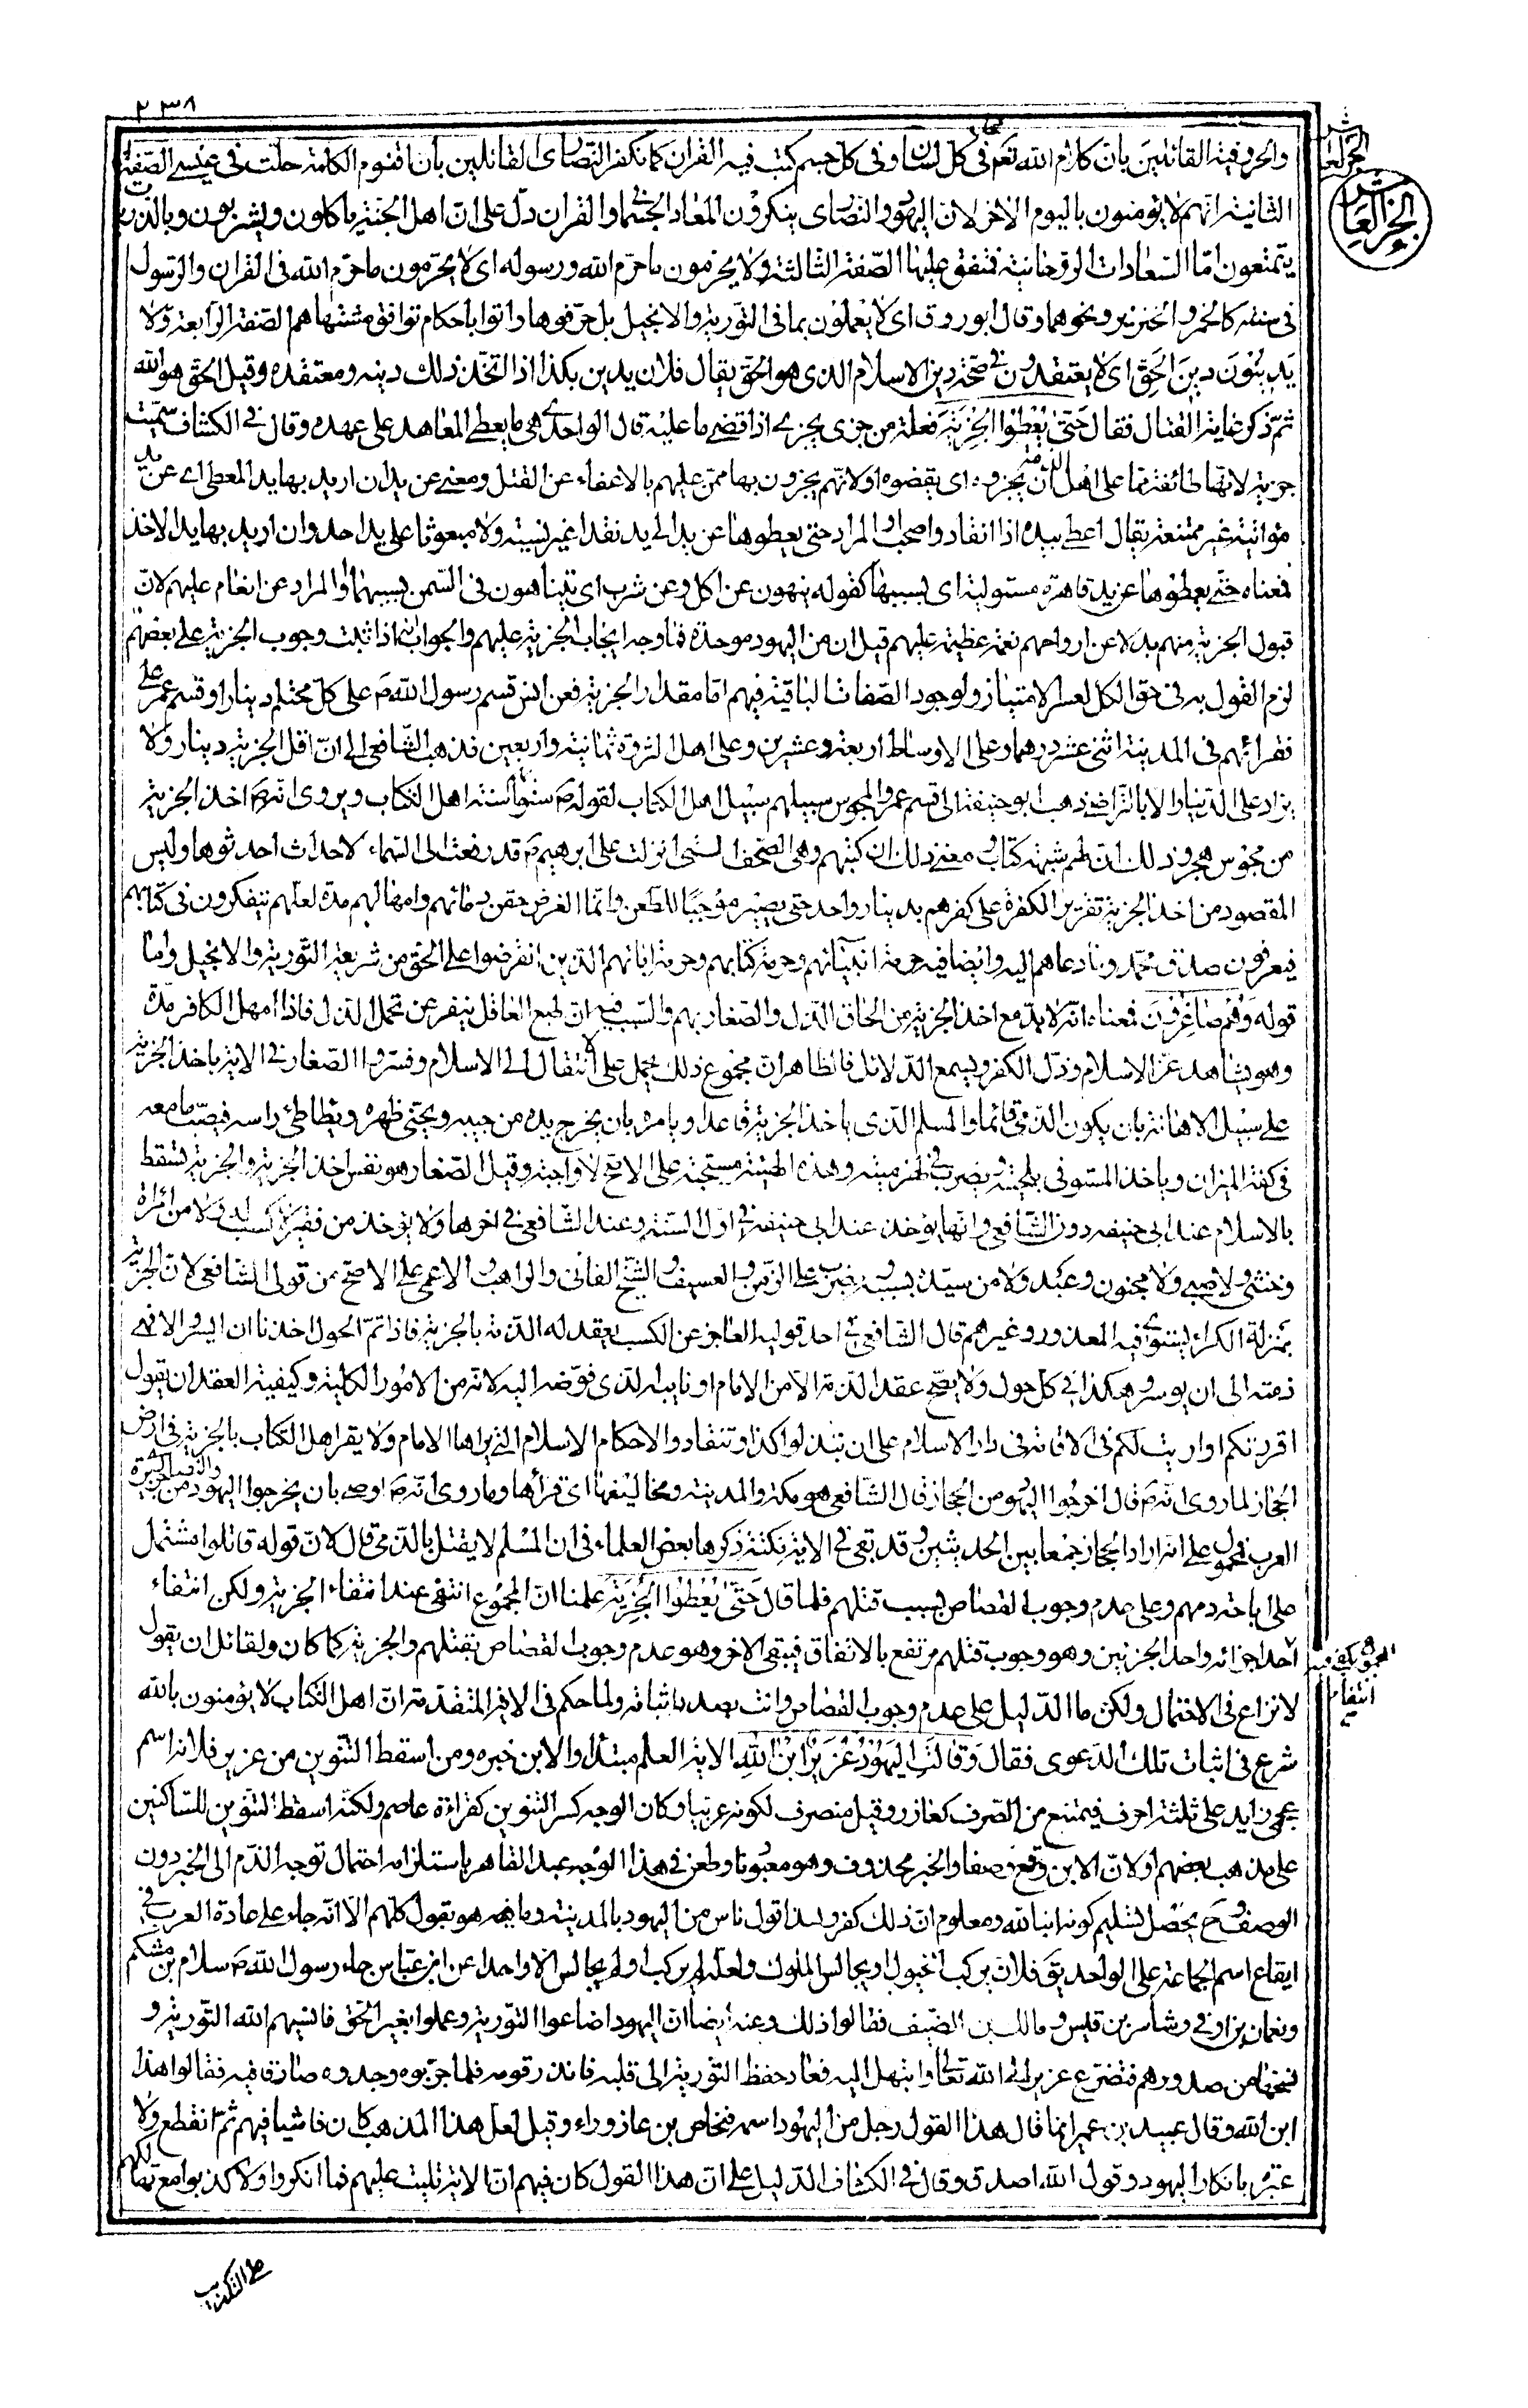 ٢٣٨
الجزء العاشر
والحروفية القائلين بان كلام الله تعالى في كل لسان وفي كل جسم كتب فيه القران كما نكفر النصارى القائلين بأن اقنوم الكلمة حلت في عيسى الصفة
الثانية انهم لا يؤمنون باليوم الاخر لان اليهود والنصارى ينكرون المعاد الجسماني والقران دل على ان اهل الجنة ياكلون ويشربون وباللذات
يتمتعون اما السعادات الروحانية فمتفق عليها الصفة الثالثة ولا يحرمون ما حرم الله ورسوله اى لا يحرمون ما حرم الله في القران والرسول
في سنته كالخمر والخنزير ونحوهما وقال ابو روق اى لا يعملون بما في التورية والانجيل بل حرفوها واتوا باحكام توافق مشتهاهم الصفة الرابعة ولا
يَدِينُونَ دِينَ الْحَقِّ اى لا يعتقدون في صحة دين الاسلام الذى هو الحق يقال فلان يدين بكذا اذا اتخذ ذلك دينه ومعتقده وقيل الحق هو الله
ثم ذكر غاية القتال فقال حَتّى يُعْطُوا الْجِزْيَةَ فعلة من جزى يجزى اذا قضى ما عليه قال الواحدى هى ما يعطى المعاهد على عهده وقال في الكشاف سميت
جزية لانها طائفة مما على اهل الذمة ان يجزوه اى يقضوه او لانهم يجزون بها ممن عليهم بالاعفاء عن القتل ومعنى عن يد ان اريد بها يد المعطى اى عن يد
مؤاتية غير ممتنعة يقال اعطى بيده اذا انقاد واصحب او المراد حتى يعطوها عن يد الى يد نقدا غير نسيئة ولا مبعوثا على يد احد وان اريد بها يد الاخذ
فمعناه حتى يعطوها عن يد قاهرة مستولية اى بسببها كقوله ينهون عن اكل وعن شرب اى يتناهون في السمن بسببهما او المراد عن انعام عليهم لان
قبول الجزية منهم بدلا عن ارواحهم نعمة عظيمة عليهم قيل ان من اليهود موحدة فما وجه ايجاب الجزية عليهم والجواب انه اذا ثبت وجوب الجزية على بعضهم
لزم القول به في حق الكل لعسر الامتياز ولوجود الصفات الباقية فيهم اما مقدار الجزية فعن انس قسم رسول الله ص على كل محتلم دينارا وقسم عمر على
فقرائهم في المدينة اثنى عشر درهما وعلى الاوساط اربعة وعشرين وعلى اهل الثروة ثمانية واربعين فذهب الشافعى الى ان اقل الجزية دينار ولا
يزاد على الدينار الا بالتراضى وذهب ابو حنيفة الى قسم عمر والمجوس سبيلهم سبيل اهل الكتاب لقوله ص سنوا بهم سنة اهل الكتاب ويروى انه ص اخذ الجزية
من مجوس هجر وذلك ان لهم شبهة كتاب ومعنى ذلك ان كتبهم وهى الصحف التى انزلت على ابرهيم ص قد رفعت الى السماء لاحداث احدثوها وليس
المقصود من اخذ الجزية تقرير الكفرة على كفرهم بدينار واحد حتى يصير موجبا للطعن وانما الغرض حقن دمائهم وامهالهم مدة لعلهم يتفكرون في كتابهم
فيعرفون صدق محمد وما دعاهم اليه وايضا فيه حرمة انبيائهم وحرمة كتابهم وحرمة ابائهم الذين انقرضوا على الحق من شريعة التورية والانجيل واما
قوله وَهُمْ صَاغِرُونَ فمعناه انه لا بد مع اخذ الجزية من الحاق الذل والصغار بهم والسبب فيه ان طبع العاقل ينفر عن تحمل الذل فاذا امهل الكافر مدة
وهو يشاهد عز الاسلام وذل الكفر ويسمع الدلائل فالظاهر ان مجموع ذلك يحمل على الانتقال الى الاسلام وفسروا الصغار في الاية باخذ الجزية
على سبيل الاهانة بان يكون الذمى قائما والمسلم الذى ياخذ الجزية قاعدا ويامره بان يخرج يده من جيبه ويحنى ظهره ويطاطئ راسه فيصب ما معه
في كفة الميزان وياخذ المستوفى بلحيته ويضرب في لهزمته وهذه الهيئة مستحبة على الاصح لا واجبة وقيل الصغار هو نفس اخذ الجزية والجزية تسقط
بالاسلام عند ابى حنيفه دون الشافعى وانها يؤخذ عند ابى حنيفه في اول السنة وعند الشافعى في اخرها ولا يؤخذ من فقير لا كسب له ولا من امراة
وخنثى ولا صبى ولا مجنون وعبد ولا من سيده بسببه ويضرب على الزمن والعسيف والشيخ الفانى والراهب والاعمى على الاصح من قولى الشافعى لان الجزية
بمنزلة الكراء يستوى فيه المعذور وغيرهم قال الشافعى في احد قوليه العاجز عن الكسب يعقد له الذمة بالجزية فاذا تم الحول اخذنا ان ايسر والا فهى
ذمته الى ان يوسر وهكذا في كل حول ولا يصح عقد الذمة الا من الامام او نايبه الذى فوضه اليه لانه من الامور الكلية وكيفية العقد ان يقول
اقررتكم او اذنت لكم في الاقامة في دار الاسلام على ان تبذلوا كذا وتنقادوا لاحكام الاسلام التى يراها الامام ولا يقر اهل الكتاب بالجزية في ارض
الحجاز لما روى انه ص قال اخرجوا اليهود من الحجاز قال الشافعى هو مكة والمدينة ومخاليفها اى قراها وما روى انه ص اوصى بان يخرجوا اليهود من جزيرة
العرب محمول على انه اراد الحجاز جمعا بين الحديثين وقد بقى في الاية نكتة ذكرها بعض العلماء في ان المسلم لا يقتل بالذمى قال لان قوله قاتلوا مشتمل
على اباحة دمهم وعلى عدم وجوب القصاص بسبب قتلهم فلما قال حَتّى يُعْطُوا الْجِزْيَةَ علمنا ان المجموع انتفى عند انتفاء الجزية ولكن انتفاء
المجموع يكفى فيه انتفاء
احد اجزائه واحد الجزئين وهو وجوب قتلهم مرتفع بالاتفاق فيبقى الاخر وهو عدم وجوب القصاص بقتلهم والجزية كما كان ولقائل ان يقول
لا نزاع في الاحتمال ولكن ما الدليل على عدم وجوب القصاص وانت بصدد اثباته ولما حكم في الاية المتقدمة ان اهل الكتاب لا يؤمنون بالله
شرع في اثبات تلك الدعوى فقال وَقَالَتِ الْيَهُودُ عُزَيْرٌ ابْنُ اللهِ الاية العلم مبتدأ والابن خبره ومن اسقط التنوين من عزير فلانه اسم
عجمى زايد على ثلثة احرف فيمتنع من الصرف كعازر وقيل منصرف لكونه عربيا وكان الوجه كسر التنوين كقراءة عاصم ولكنه اسقط التنوين للساكنين
على مذهب بعضهم او لان الابن وقع وصفا والخبر محذوف وهو معبودنا وطعن في هذا الوجه عبد القاهر باستلزامه احتمال توجه الذم الى الخبر دون
الوصف وح يحصل تسليم كونه ابنا لله ومعلوم ان ذلك كفر وهذا قول ناس من اليهود بالمدينة وما هو بقول كلهم الا انه جاء على عادة العرب في
ايقاع اسم الجماعة على الواحد يق فلان يركب الخيول او يجالس الملوك ولعله لم يركب او لم يجالس الا واحدا عن ابن عباس جاء رسول الله ص سلام بن مشكم
ونعمان بن اوفى وشأس بن قيس ومالك بن الصيف فقالوا ذلك وعنه ايضا ان اليهود اضاعوا التورية وعملوا بغير الحق فانسيهم الله التورية و
نسخها من صدورهم فتضرع عزير الى الله تعالى وابتهل اليه فعاد حفظ التورية الى قلبه فانذر قومه فلما جربوه وجدوه صادقا فيه فقالوا هذا
ابن الله وقال عبيد بن عمير انما قال هذا القول رجل من اليهود اسمه فنحاص بن عازوراء وقيل لعل هذا المذهب كان فاشيا فيهم ثم انقطع ولا
عبرة بانكار اليهود وقول الله اصدق وقال في الكشاف الدليل على ان هذا القول كان فيهم ان الاية تليت عليهم فما انكروا ولا كذبوا مع تهالكهم
على التكذيب